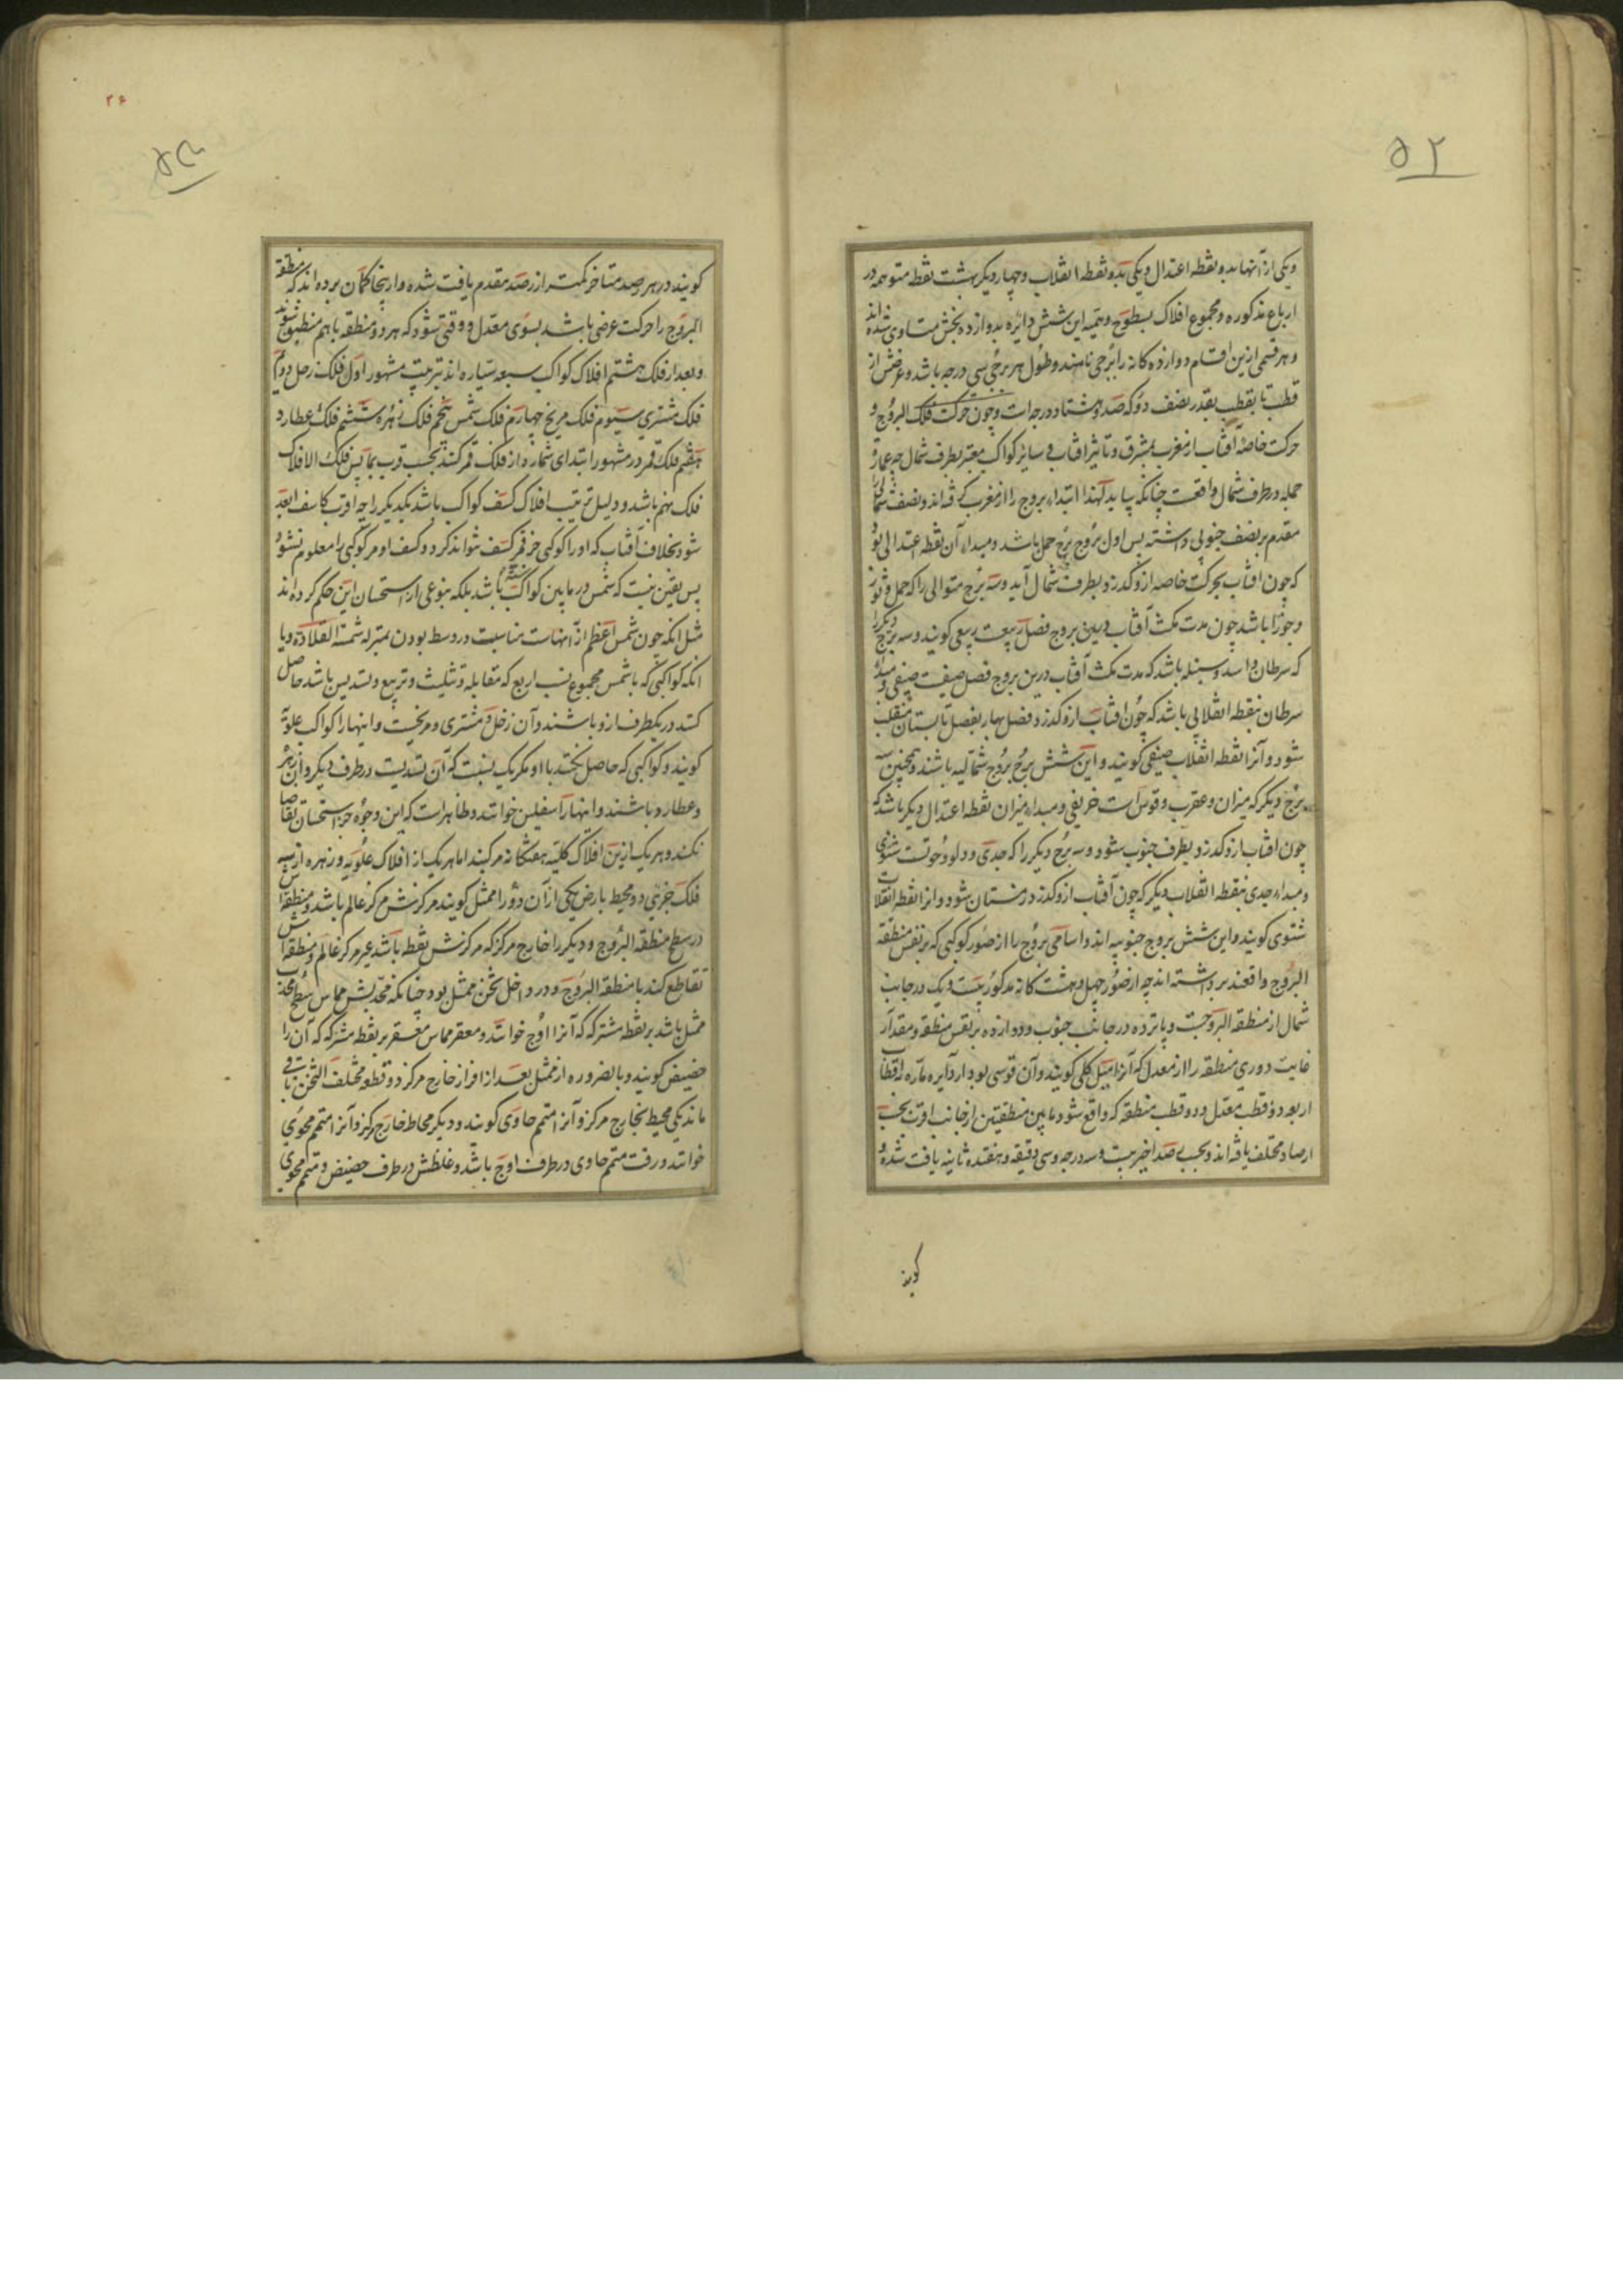 ۵۲
ویکی از آنها بدو نقطه اعتدال ویکی بدو نقطه انقلاب وچهار دیکر بهشت نقطه متوهمه در
ارباع مذکوره ومجموع افلاک بسطوح وهمیه این شش دایره بدوازده بخش متساوی شده اند
وهر قسمی ازین اقسام دوازده کانه را برجی نامند وطول هر برجی سی درجه باشد وعرضش از
قطب تا بقطب بقدر نصف دور که صد وهشتاد درجه است وچون حرکت فلک البروج و
حرکت خاصه آفتاب از مغرب بمشرق وتاثیر آفتاب فی سایر کواکب معتبر بطرف شمال چه عمارة
جمله در طرف شمال واقعست چنانکه بیاید لهذا ابتداء بروج را از مغرب کرفته اند ونصف شمالی را
مقدم بر نصف جنوبی داشته پس اول بروج برج حمل باشد ومبداء آن نقطه اعتدالی بود
که چون افتاب بحرکت خاصه ازو کذرد بطرف شمال آید وسه برج متوالی را که حمل وثور
وجوزا باشد چون مدت مکث آفتاب درین بروج فصل ربیعست ربیعی کویند وسه برج دیکر را
که سرطان واسد وسنبله باشد که مدت مکث آفتاب درین بروج فصل صیفست صیفی ومبداء
سرطان نقطه انقلابی باشد که چون افتاب ازو کذرد فصل بهار بفصل تابستان منقلب
شود وآنرا نقطه انقلاب صیفی کویند واین شش برج بروج شمالیه باشند وهمچنین سه
برج دیکر که میزان وعقرب وقوس است خریفی ومبداء میزان نقطه اعتدال دیکر باشد که
چون افتاب ازو کذرد بطرف جنوب شود وسه برج دیکر را که جدی ودلو وحوتست شتوی
ومبداء جدی نقطه انقلاب دیکر که چون آفتاب ازو کذرد زمستان شود وانرا نقطه انقلاب
شتوی کویند واین شش بروج جنوبیه اند واسامی بروج را از صور کوکبی که بر نفس منطقه
البروج واقعند برداشته اند چه از صور چهل وهشت کانه مذکور بیست ویک در جانب
شمال از منطقه البروجست وپانزده در جانب جنوب ودوازده بر نفس منطقه ومقدار
غایت دوری منطقه را از معدل که آنرا میل کلی کویند وآن قوسی بود از دایره ماره باقطاب
اربعه دو قطب معدل ودو قطب منطقه که واقع شود مابین منطقتین از جانب اقرب بحسب
ارصاد مختلف یافته اند وبحسب رصد اخیر بیست وسه درجه وسی دقیقه وهفده ثانیه یافت شده و
کویند
۲۶
کویند در هر رصد متاخر کمتر از رصد مقدم یافت شده واز ینجا کمان برده اند که منطقة
البروج را حرکت عرضی باشد بسوی معدل ووقتی شود که هر دو منطقه باهم منطبق شوند
وبعد از فلک هشتم افلاک کواکب سبعه سیاره اند بترتیب مشهور اول فلک زحل دوم
فلک مشتری سیوم فلک مریخ چهارم فلک شمس پنجم فلک زهره ششم فلک عطارد
هفتم فلک قمر ودر مشهور ابتدای شمار از فلک قمر کنند بحسب قرب بما پس فلک الافلاک
فلک نهم باشد ودلیل ترتیب افلاک کسف کواکب باشد یکدیکر را چه اقرب کاسف ابعد
شود بخلاف آفتاب که اورا کوکبی جز قمر کسف نتواند کرد وکسف او مر کوکبی را معلوم نشود
پس یقین نیست که شمس در مابین کواکب سته باشد بلکه بنوعی از استحسان این حکم کرده اند
مثل انکه چون شمس اعظم از آنهاست مناسبت در وسط بودن بمنزله شمسة القلادة ویا
انکه کواکبی که با شمس مجموع نسب اربع که مقابله وتثلیث وتربیع وتسدیس باشد حاصل
کنند در یکطرف ازو باشند وآن زحل ومشتری ومریخست واینها را کواکب علویه
کویند وکواکبی که حاصل نکنند با او مکر یک نسبت که آن تسدیست در طرف دیکر وآن زهره
وعطارد باشند واینها را سفلیین خوانند وظاهر است که این وجوه جز استحسان تقاضا
نکند وهر یک ازین افلاک کلیه هفتکانه مرکبند اما هر یک از افلاک علویه وزهره از سه
فلک جزئی دو محیط بارض یکی از آن دو را ممثل کویند مرکزش مرکز عالم باشد ومنطقه اش
در سطح منطقه البروج ودیکر را خارج مرکز که مرکزش نقطه باشد غیر مرکز عالم ومنطقه اش
تقاطع کند با منطقة البروج ودر داخل ثخن ممثل بود چنانکه محدبش مماس سطح محدب
ممثل باشد بر نقطه مشترکه که آنرا اوج خوانند ومقعر مماس مقعر بر نقطه مشترکه که آن را
حضیض کویند وبالضروره از ممثل بعد از افراز خارج مرکز دو قطعه مختلف الثخن باقی
ماند یکی محیط بخارج مرکز وآنرا متمم حاوی کویند ودیکر محاط خارج مرکز وآنرا متمم محوی
خوانند ورقت متمم حاوی در طرف اوج باشد وغلظش در طرف حضیض ومتمم محوی